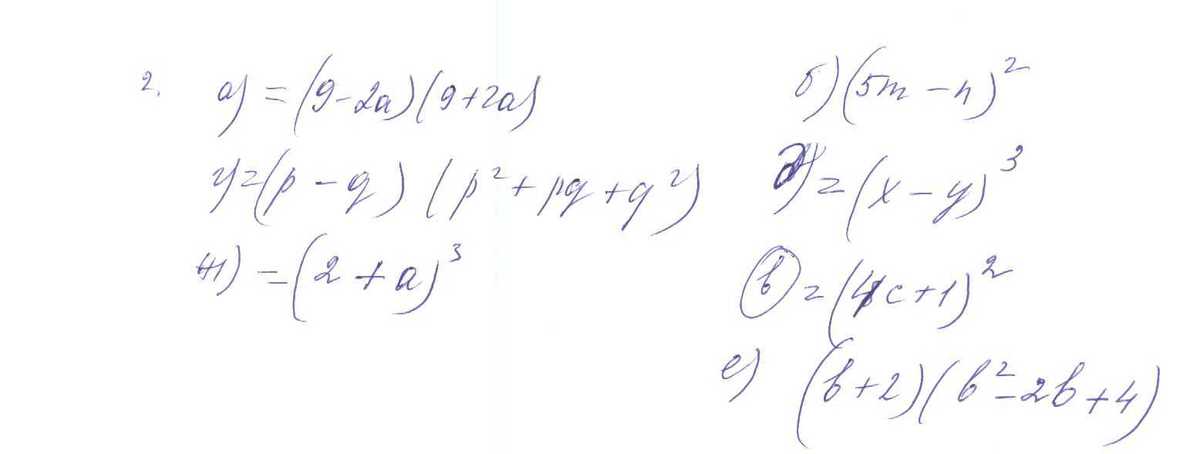 2. а) = (9-2a)(9+2a)
б) (5m-n)²
г) = (p-q)(p²+pq+q²)
д) = (x-y)³
ж) = (2+a)³
в) = (4c+1)²
е) (b+2)(b²-2b+4)